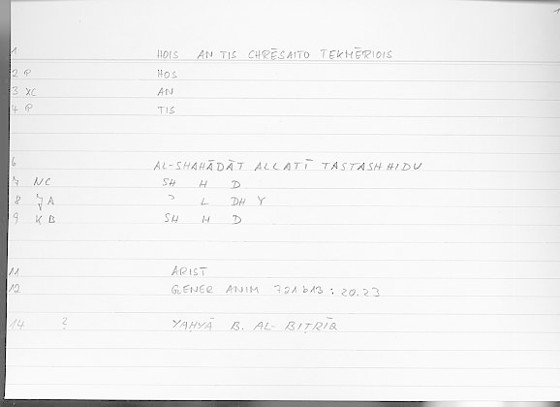 1 HOIS AN TIS CHRĒSAITO TEKMĒRIOIS
2 P HOS
3 XC AN
4 P TIS
6 AL-SHAHĀDĀT ALLATĪ TASTASHHIDU
7 NC SH H D
8 A ʾ L DH Y
9 KB SH H D
11 ARIST
12 GENER ANIM 721b13 : 20.23
14 ? YAḤYĀ B. AL-BIṬRĪQ